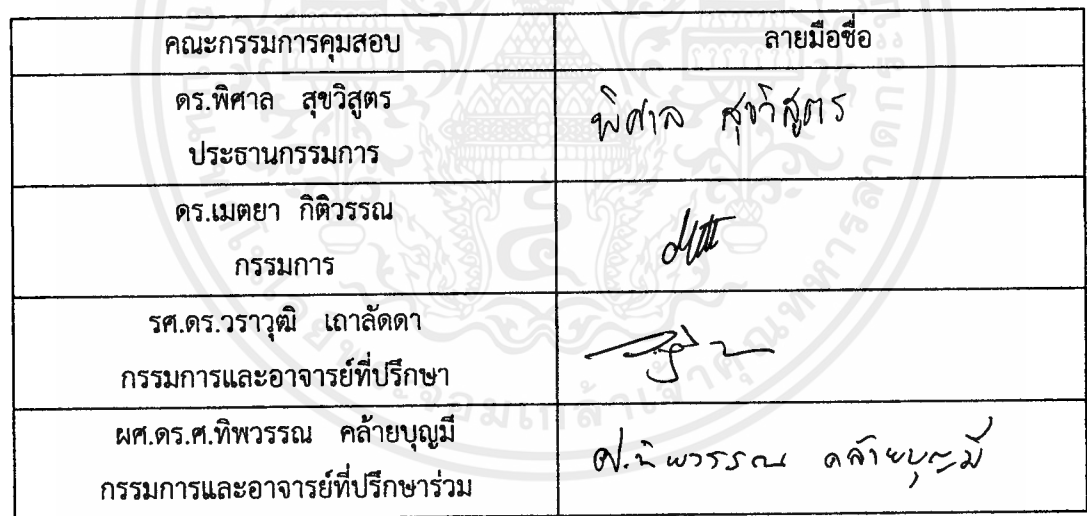 คณะกรรมการคุมสอบ ลายมือชื่อ
ดร.พิศาล สุขวิสูตร
ประธานกรรมการ
พิศาล สุขวิสูตร
ดร.เมตยา กิติวรรณ
กรรมการ
รศ.ดร.วราวุฒิ เถาลัดดา
กรรมการและอาจารย์ที่ปรึกษา
ผศ.ดร.ศ.ทิพวรรณ คล้ายบุญมี
กรรมการและอาจารย์ที่ปรึกษาร่วม
ศ.ทิพวรรณ คล้ายบุญมี